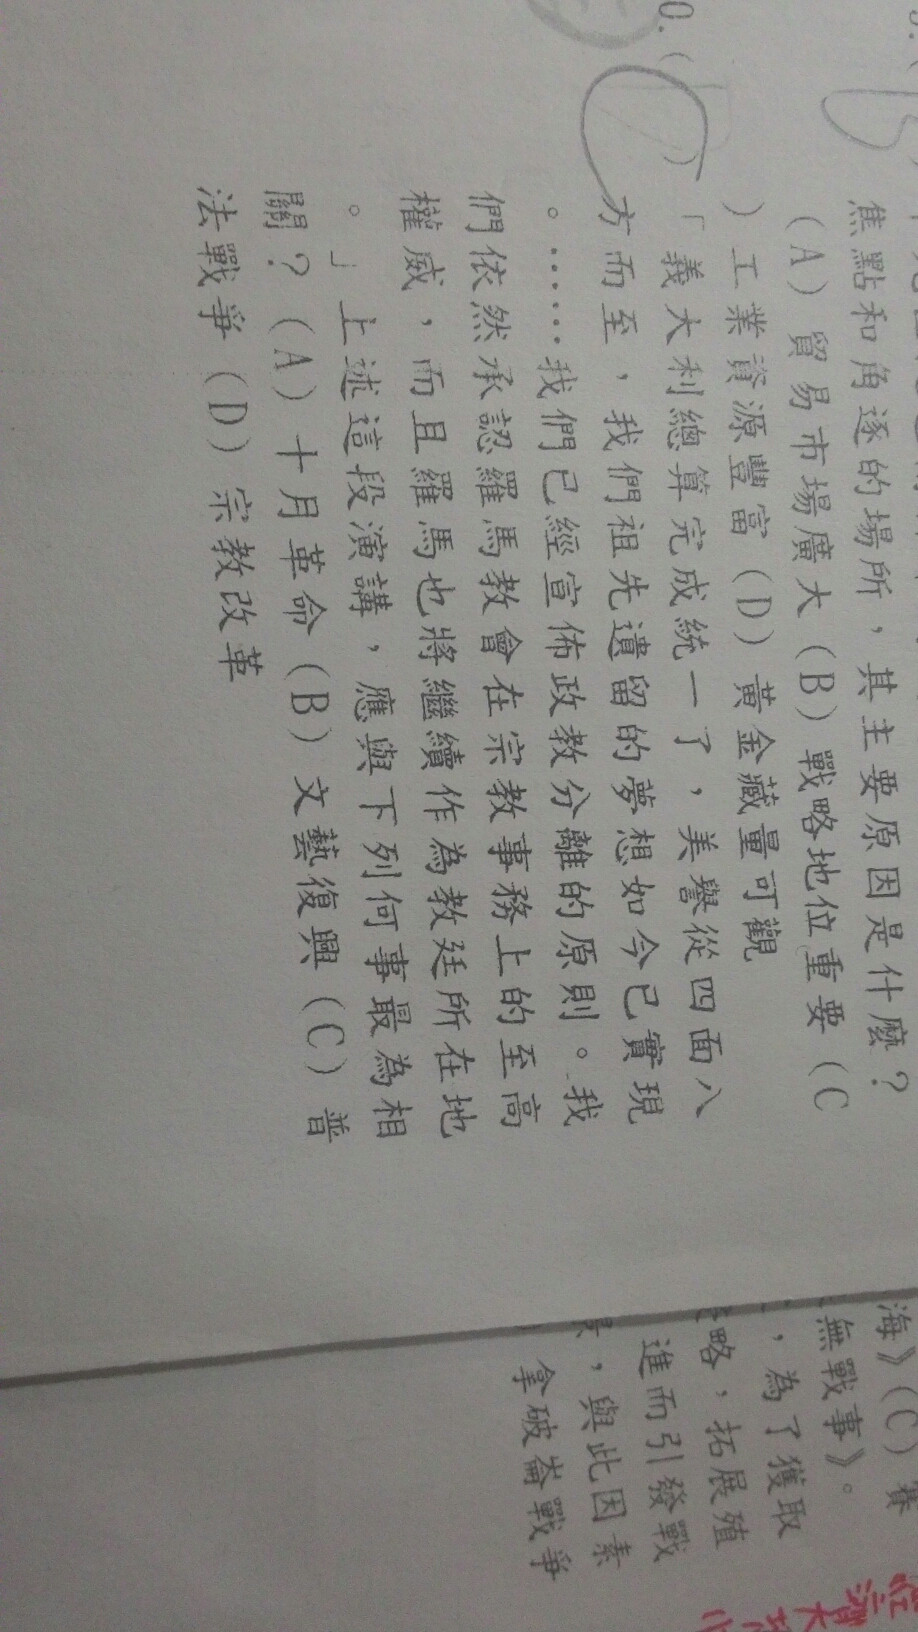 焦點和角逐的場所，其主要原因是什麼？
(A) 貿易市場廣大 (B) 戰略地位重要 (C
) 工業資源豐富 (D) 黃金藏量可觀
0. ( C )
「義大利總算完成統一了，美譽從四面八
方而至，我們祖先遺留的夢想如今已實現
。……我們已經宣佈政教分離的原則。我
們依然承認羅馬教會在宗教事務上的至高
權威，而且羅馬也將繼續作為教廷所在地
。」上述這段演講，應與下列何事最為相
關？ (A) 十月革命 (B) 文藝復興 (C) 普
法戰爭 (D) 宗教改革
海》(C) 賽
無戰事》。
，為了獲取
略，拓展殖
進而引發戰
，與此因素
拿破崙戰爭